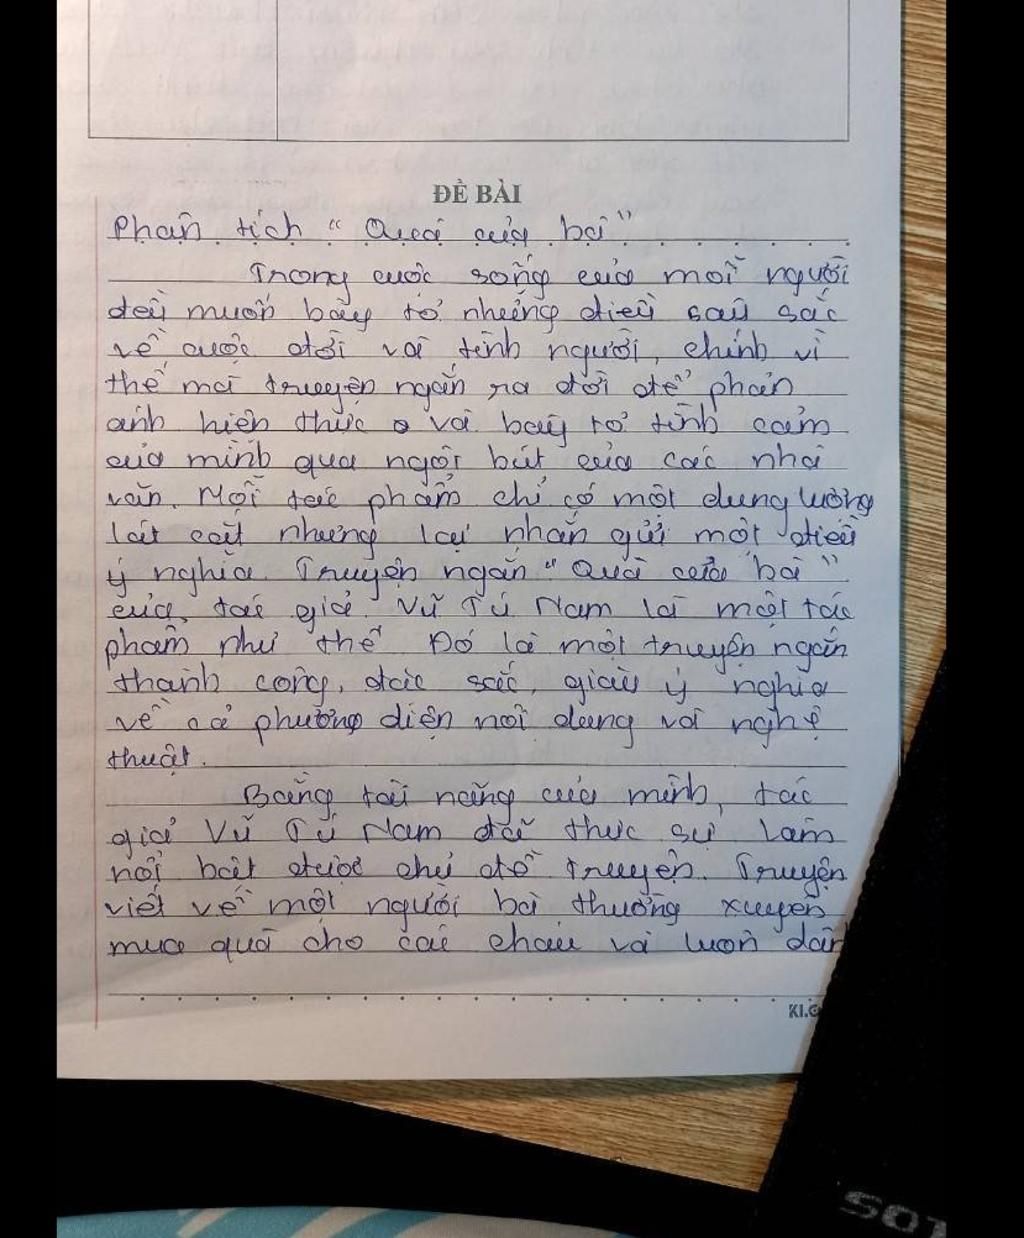 ĐỀ BÀI
Phân tích "Quà của bà"
Trong cuộc sống của mỗi người
đều muốn bày tỏ những điều sâu sắc
về cuộc đời và tình người, chính vì
thế mà truyện ngắn ra đời để phản
ánh hiện thực và bày tỏ tình cảm
của mình qua ngòi bút của các nhà
văn. Mỗi tác phẩm chỉ có một dung lượng
lát cắt nhưng lại nhắn gửi một điều
ý nghĩa. Truyện ngắn "Quà của bà"
của tác giả Vũ Tú Nam là một tác
phẩm như thế. Đó là một truyện ngắn
thành công, đặc sắc, giàu ý nghĩa
về cả phương diện nội dung và nghệ
thuật.
Bằng tài năng của mình, tác
giả Vũ Tú Nam đã thực sự làm
nổi bật được chủ đề truyện. Truyện
viết về một người bà thường xuyên
mua quà cho các cháu và luôn dàn
KI.G
SOL